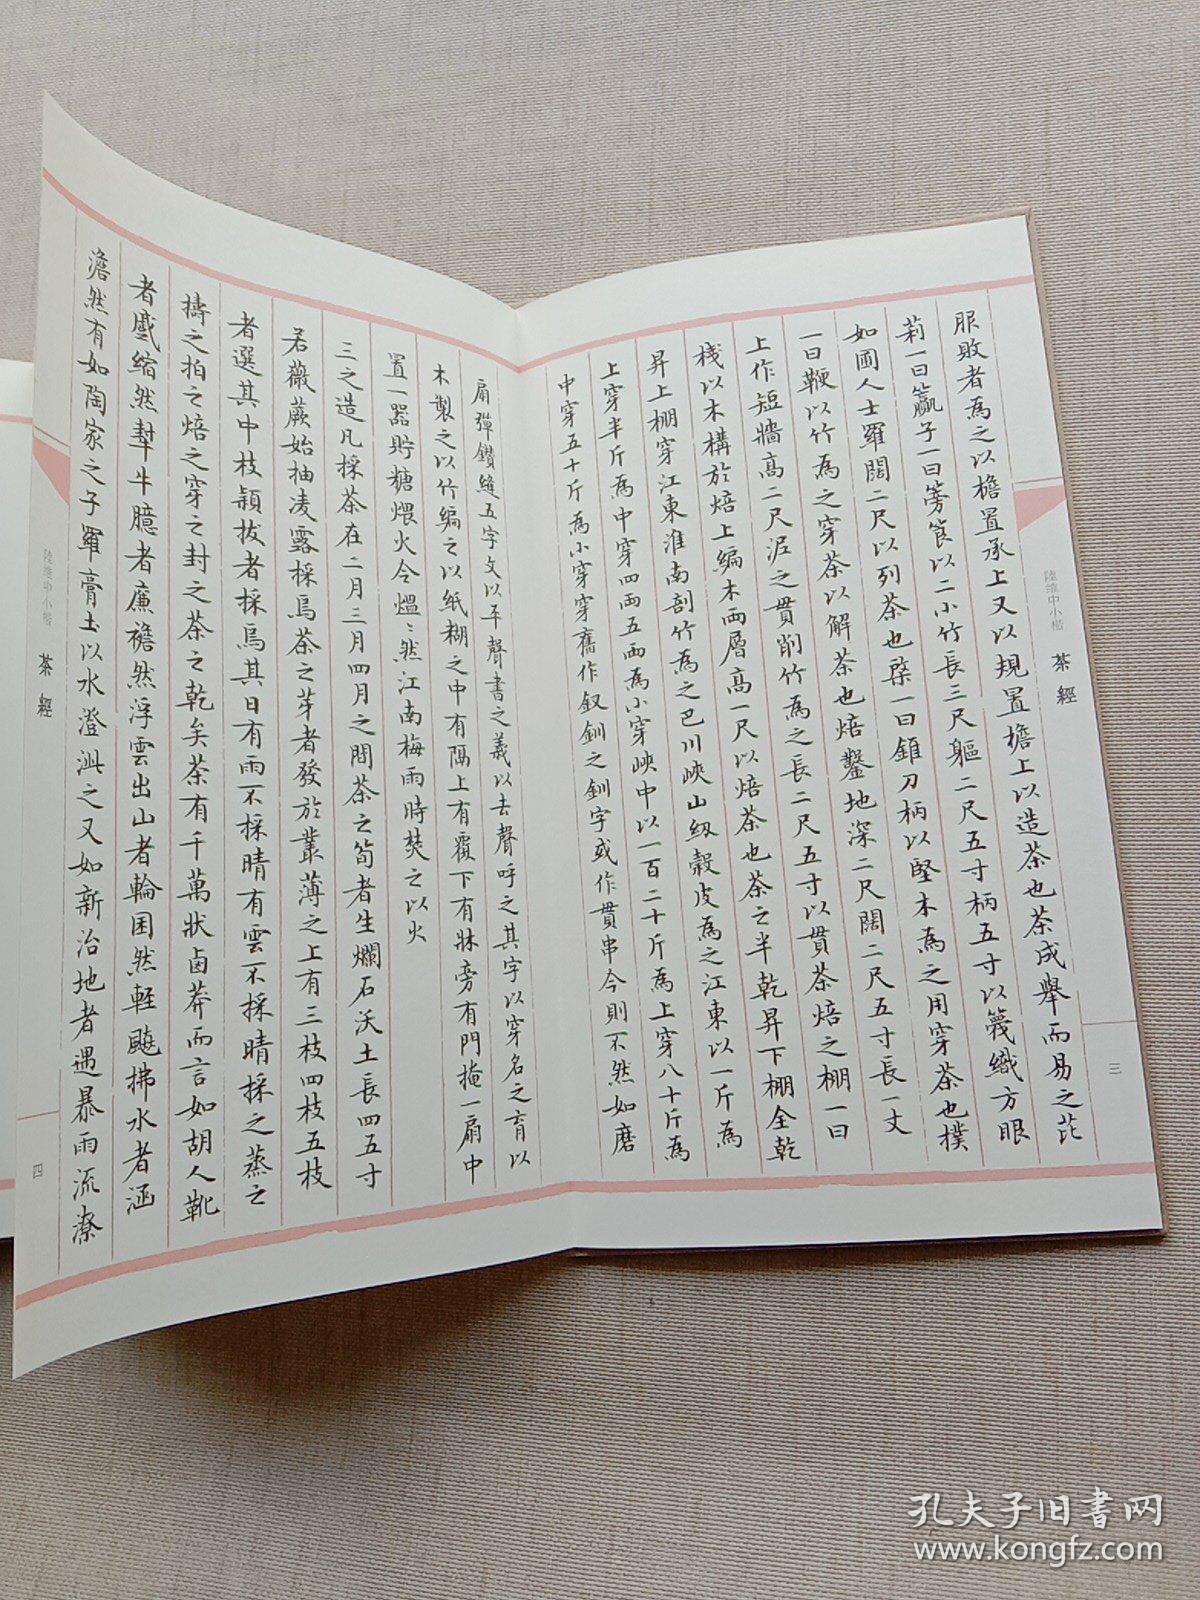 服敗者為之以檐置承上又以規置檐上以造茶也茶成舉而易之芘
莉一曰籯子一曰篣筤以二小竹長三尺軀二尺五寸柄五寸以篾織方眼
如圃人士羅闊二尺以列茶也棨一曰錐刀柄以堅木為之用穿茶也撲
一曰鞭以竹為之穿茶以解茶也焙鑿地深二尺闊二尺五寸長一丈
上作短牆高二尺泥之貫削竹為之長二尺五寸以貫茶焙之棚一曰
棧以木構於焙上編木兩層高一尺以焙茶也茶之半乾昇下棚全乾
昇上棚穿江東淮南剖竹為之巴川峽山紉穀皮為之江東以一斤為
上穿半斤為中穿四兩五兩為小穿峽中以一百二十斤為上穿八十斤為
中穿五十斤為小穿穿舊作釵釧之釧字或作貫串今則不然如磨
陸維中小楷
茶經
三
扇彈鑽縫五字文以平聲書之義以去聲呼之其字以穿名之育以
木製之以竹編之以紙糊之中有隔上有覆下有牀旁有門掩一扇中
置一器貯糖煨火令熅〻然江南梅雨時焚之以火
三之造凡採茶在二月三月四月之間茶之筍者生爛石沃土長四五寸
若薇蕨始抽凌露採焉茶之芽者發於叢薄之上有三枝四枝五枝
者選其中枝穎拔者採焉其日有雨不採晴有雲不採晴採之蒸之
擣之拍之焙之穿之封之茶之乾矣茶有千萬狀鹵莽而言如胡人靴
者蹙縮然犎牛臆者廉襜然浮雲出山者輪囷然輕飈拂水者涵
澹然有如陶家之子羅膏土以水澄泚之又如新治地者遇暴雨流潦
陸維中小楷
茶經
四
孔夫子旧书网
www.kongfz.com